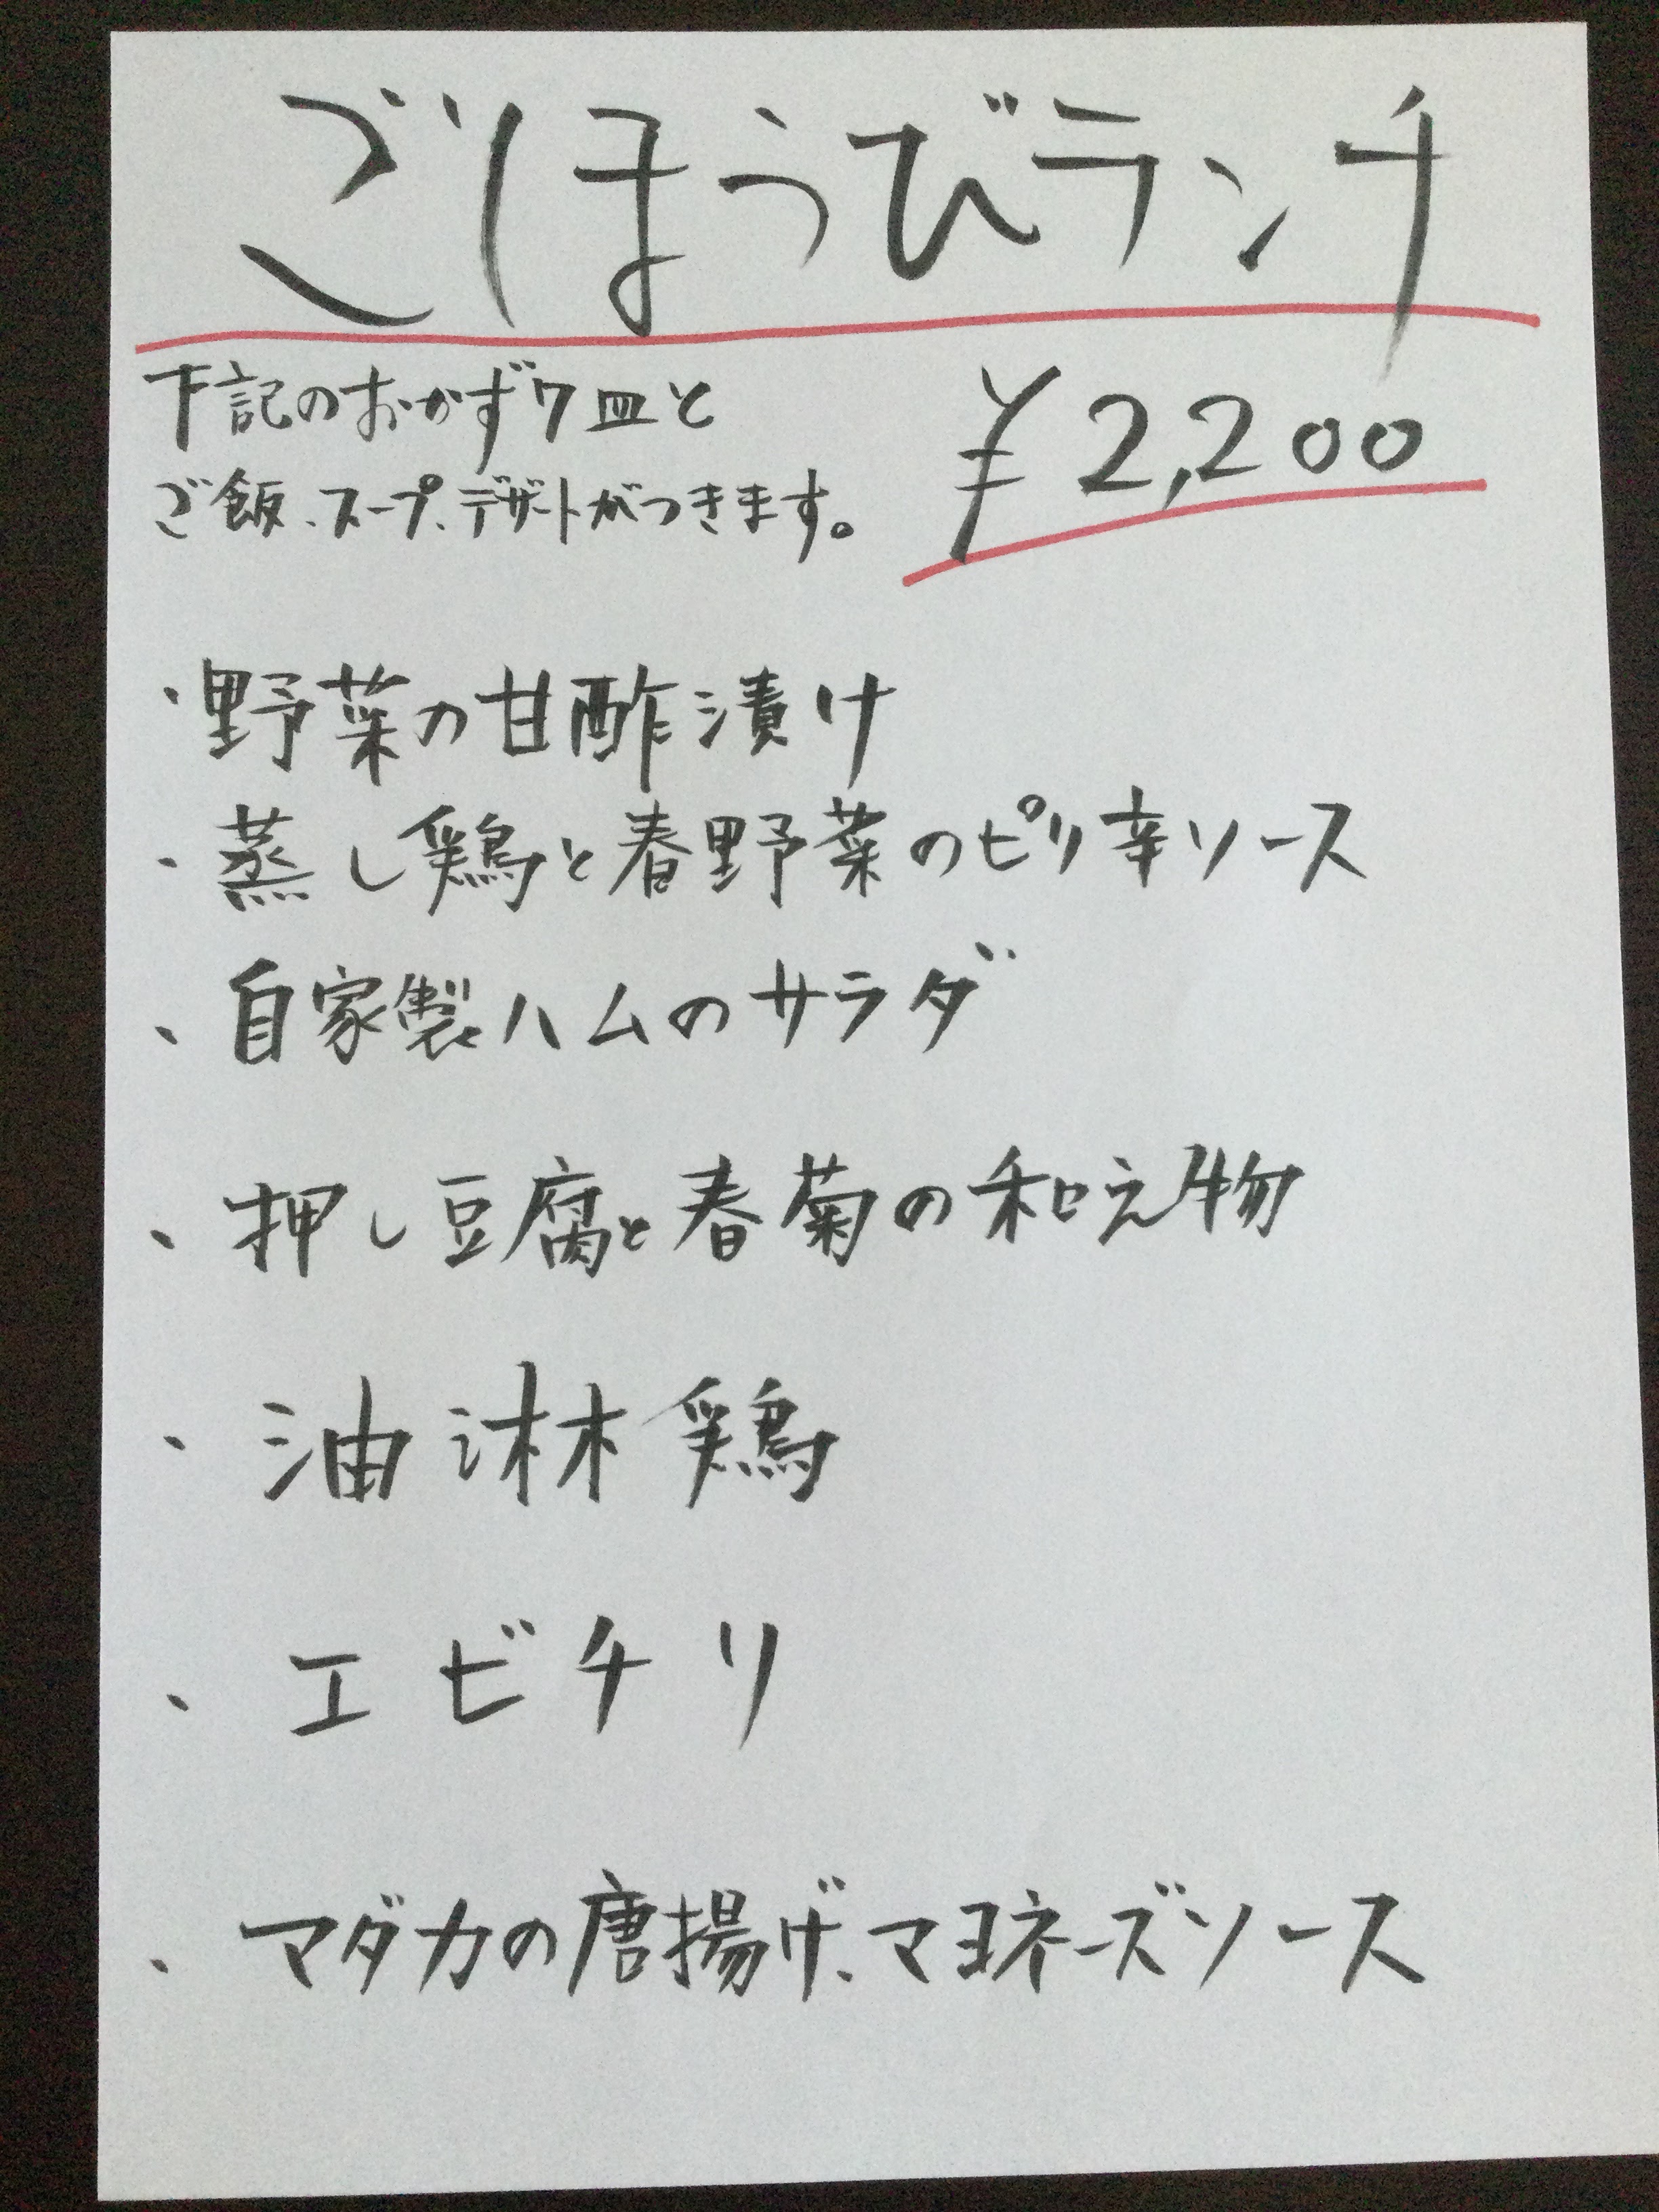 ごほうびランチ
下記のおかず7皿と
ご飯、スープ、デザートがつきます。
¥2,200
・野菜の甘酢漬け
・蒸し鶏と春野菜のピリ辛ソース
・自家製ハムのサラダ
・押し豆腐と春菊の和え物
・油淋鶏
・エビチリ
・マダカの唐揚げ、マヨネーズソース